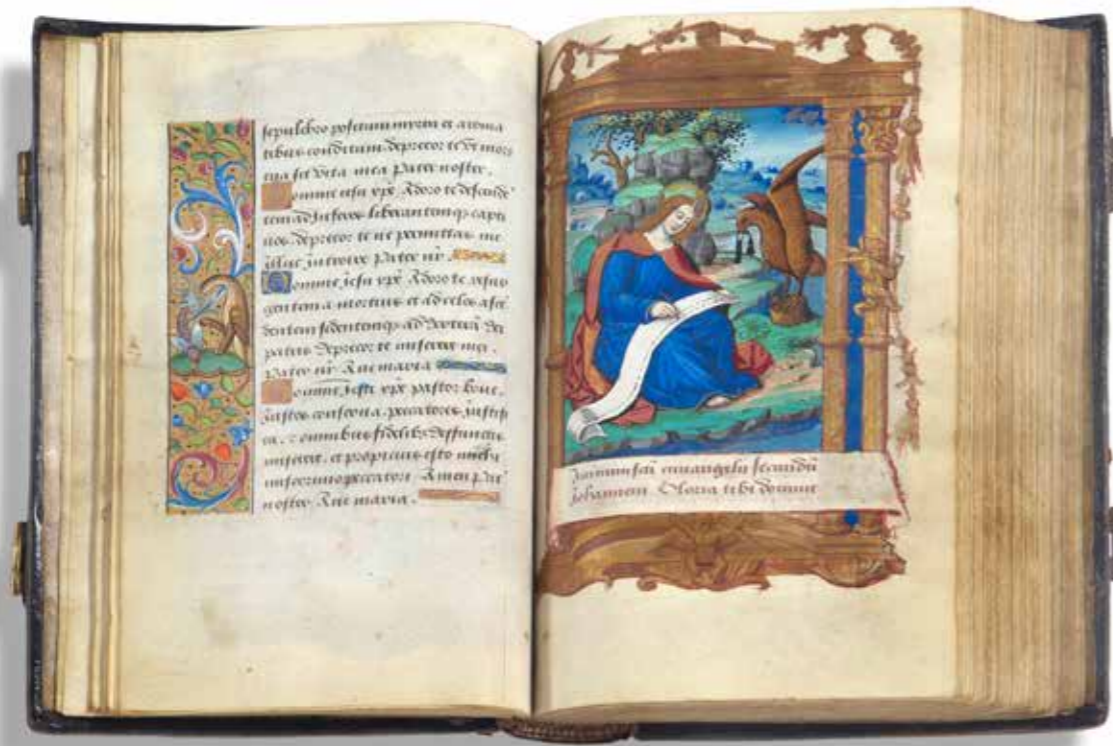 sepulchro positum mirra et aroma
tibus conditum deprecor te ut mors
tua sit vita mea Pater noster.
Domine iesu xpe Adoro te descendē
tem ad inferos liberantemq; capti
vos deprecor te ne permittas me
illuc introire Pater nr̄.
Domine iesu xpe Adoro te resur
gentem a mortuis et ad celos ascē
dentem sedentemq; ad dexterā dei
patris Deprecor te miserere mei.
Pater nr̄ Ave maria
Domine iesu xpe pastor bone,
justos conserva. peccatores justifi
ca. omnibus fidelib; deffunctis
miserere. et propicius esto michi
misero peccatori. Amen Pat̄
noster Ave maria.
Inicium sc̄i euvangelii secundū
Johannem Gloria tibi domine